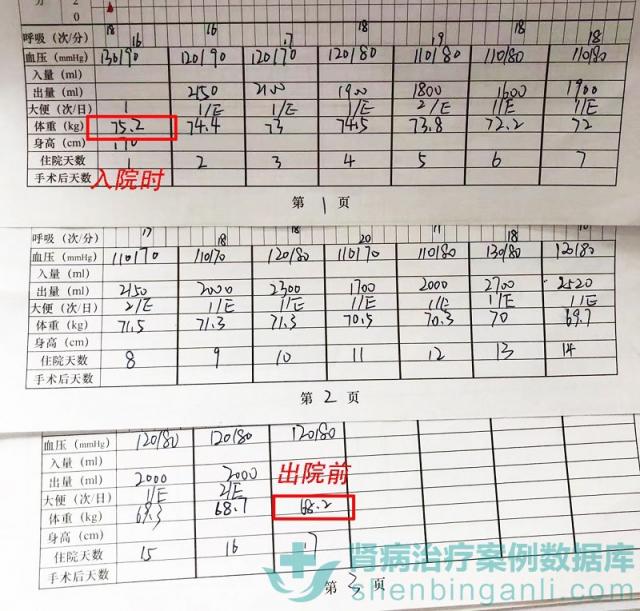 2
0
呼吸（次/分） 18 16 16 17 18 19 18 18
血压（mmHg） 130/90 120/90 120/70 120/80 110/80 110/80 110/80
入量（ml）
出量（ml） 2150 2100 1900 1800 1600 1900
大便（次/日） 1 1/E 1/E 1/E 2/E 1/E 1/E
体重（kg） 75.2 74.4 73 74.5 73.8 72.2 72
身高（cm） 170
住院天数 1 2 3 4 5 6 7
入院时
手术后天数
第 1 页
呼吸（次/分） 17 18 18 20 11 18
血压（mmHg） 110/70 110/70 120/80 110/70 110/80 130/80 120/80
入量（ml）
出量（ml） 2150 2000 2300 1700 2000 2700 2520
大便（次/日） 2/E 1/E 1/E 1/E 1/E 1/E 1/E
体重（kg） 71.5 71.3 71.3 70.5 70.3 70 69.7
身高（cm）
住院天数 8 9 10 11 12 13 14
手术后天数
第 2 页
血压（mmHg） 120/80 120/80 120/80
入量（ml）
出院前
出量（ml） 2000 2000
大便（次/日） 1/E 2/E
体重（kg） 69.3 68.7 68.2
身高（cm）
住院天数 15 16 7
手术后天数
第 3 页
肾病治疗案例数据库
shenbinganli.com